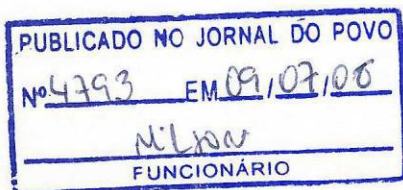 PUBLICADO NO JORNAL DO POVO
Nº 4793 EM 09/07/08
Nilson
FUNCIONÁRIO